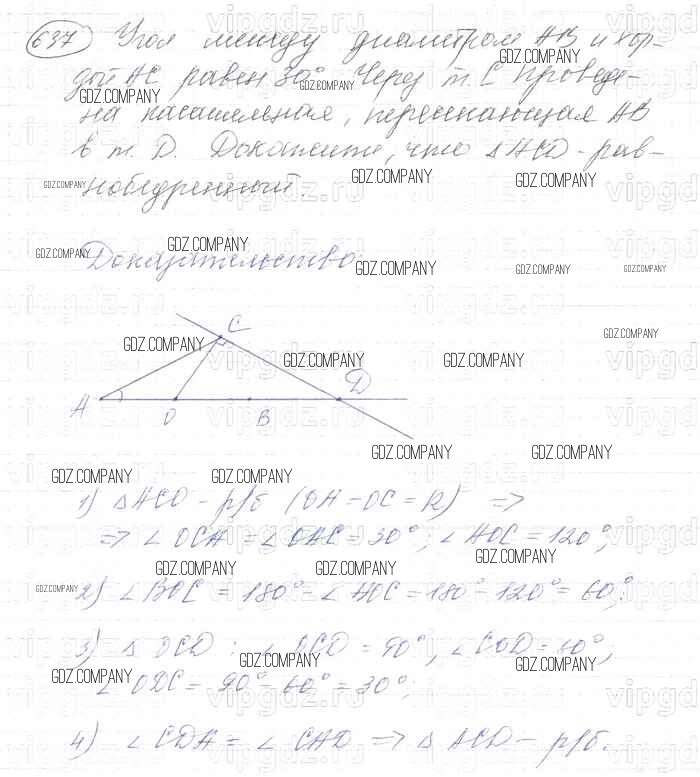 637 Угол между диаметром AB и хор-
дой AC равен 30°. Через т. C проведе-
на касательная, пересекающая AB
в т. D. Докажите, что △ACD - рав-
нобедренный.
Доказательство:
C
A O B D
1) △ACO - р/б (OA = OC = R) =>
=> ∠OCA = ∠OAC = 30°; ∠AOC = 120°;
2) ∠BOC = 180° - ∠AOC = 180° - 120° = 60°;
3) △OCD: ∠OCD = 90°, ∠COD = 60°,
∠ODC = 90° - 60° = 30°;
4) ∠CDA = ∠CAD => △ACD - р/б.